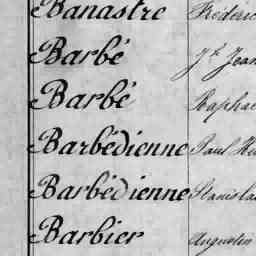 Banastre Frédéric
Barbé Jh Jean
Barbé Raphaë
Barbédienne Paul He
Barbédienne Stanisla
Barbier Augustin